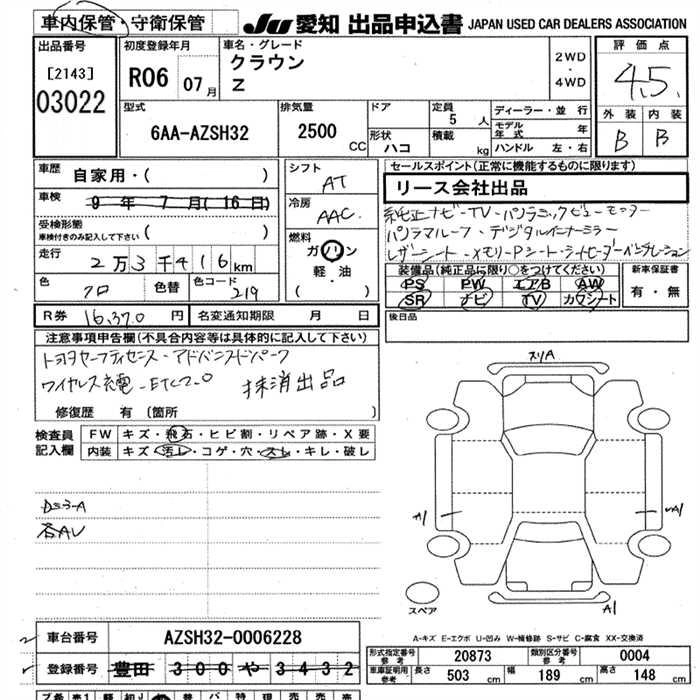 車内保管・守衛保管 JU 愛知 出品申込書 JAPAN USED CAR DEALERS ASSOCIATION
出品番号 初度登録年月 車名・グレード 2WD・4WD 評価点
[2143] R06 07月 クラウン 4.5
03022 Z 外装 内装
型式 排気量 ドア 定員 ディーラー・並行 B B
6AA-AZSH32 2500 CC 5人 モデル年式 年
形状 ハコ 積載 kg ハンドル 左・右
車歴 自家用・( ) シフト AT セールスポイント(正常に機能するものに限ります)
車検 9年 7月(16日) 冷房 AAC リース会社出品
受検形態 純正ナビ-TV-パノラミックビューモニター
車検付きのみ記入して下さい ( ) 燃料 パノラマルーフ・デジタルインナーミラー
走行 2万3千416km ガソリン レザーシート-メモリーPシート-シートヒーターベンチレーション
軽・油
( )
色 クロ 色替 色コード 219 装備品(純正品に限り○をつけてください) 新車保証書
PS PW エアB AW 有・無
SR ナビ TV カワシート
R券 16,370円 名変通知期限 月 日 後日品
注意事項申告欄(不具合内容等は具体的に記入して下さい)
トヨタセーフティセンス-アドバンスドパーク
ワイヤレス充電-ETC2.0 抹消出品
修復歴 有(箇所 )
検査員記入欄 FW キズ・飛石・ヒビ割・リペア跡・X要
内装 キズ・汚レ・コゲ・穴・スレ・キレ・破レ
スリA
各AU
A1
A1
スペア
A1
A-キズ E-エクボ U-凹み W-補修跡 S-サビ C-腐食 XX-交換済
車台番号 AZSH32-0006228 形式指定番号 参考 20873 類別区分番号 参考 0004
登録番号 豊田 300 や 3432 車車証明用 参考 長さ 503 cm 幅 189 cm 高さ 148 cm